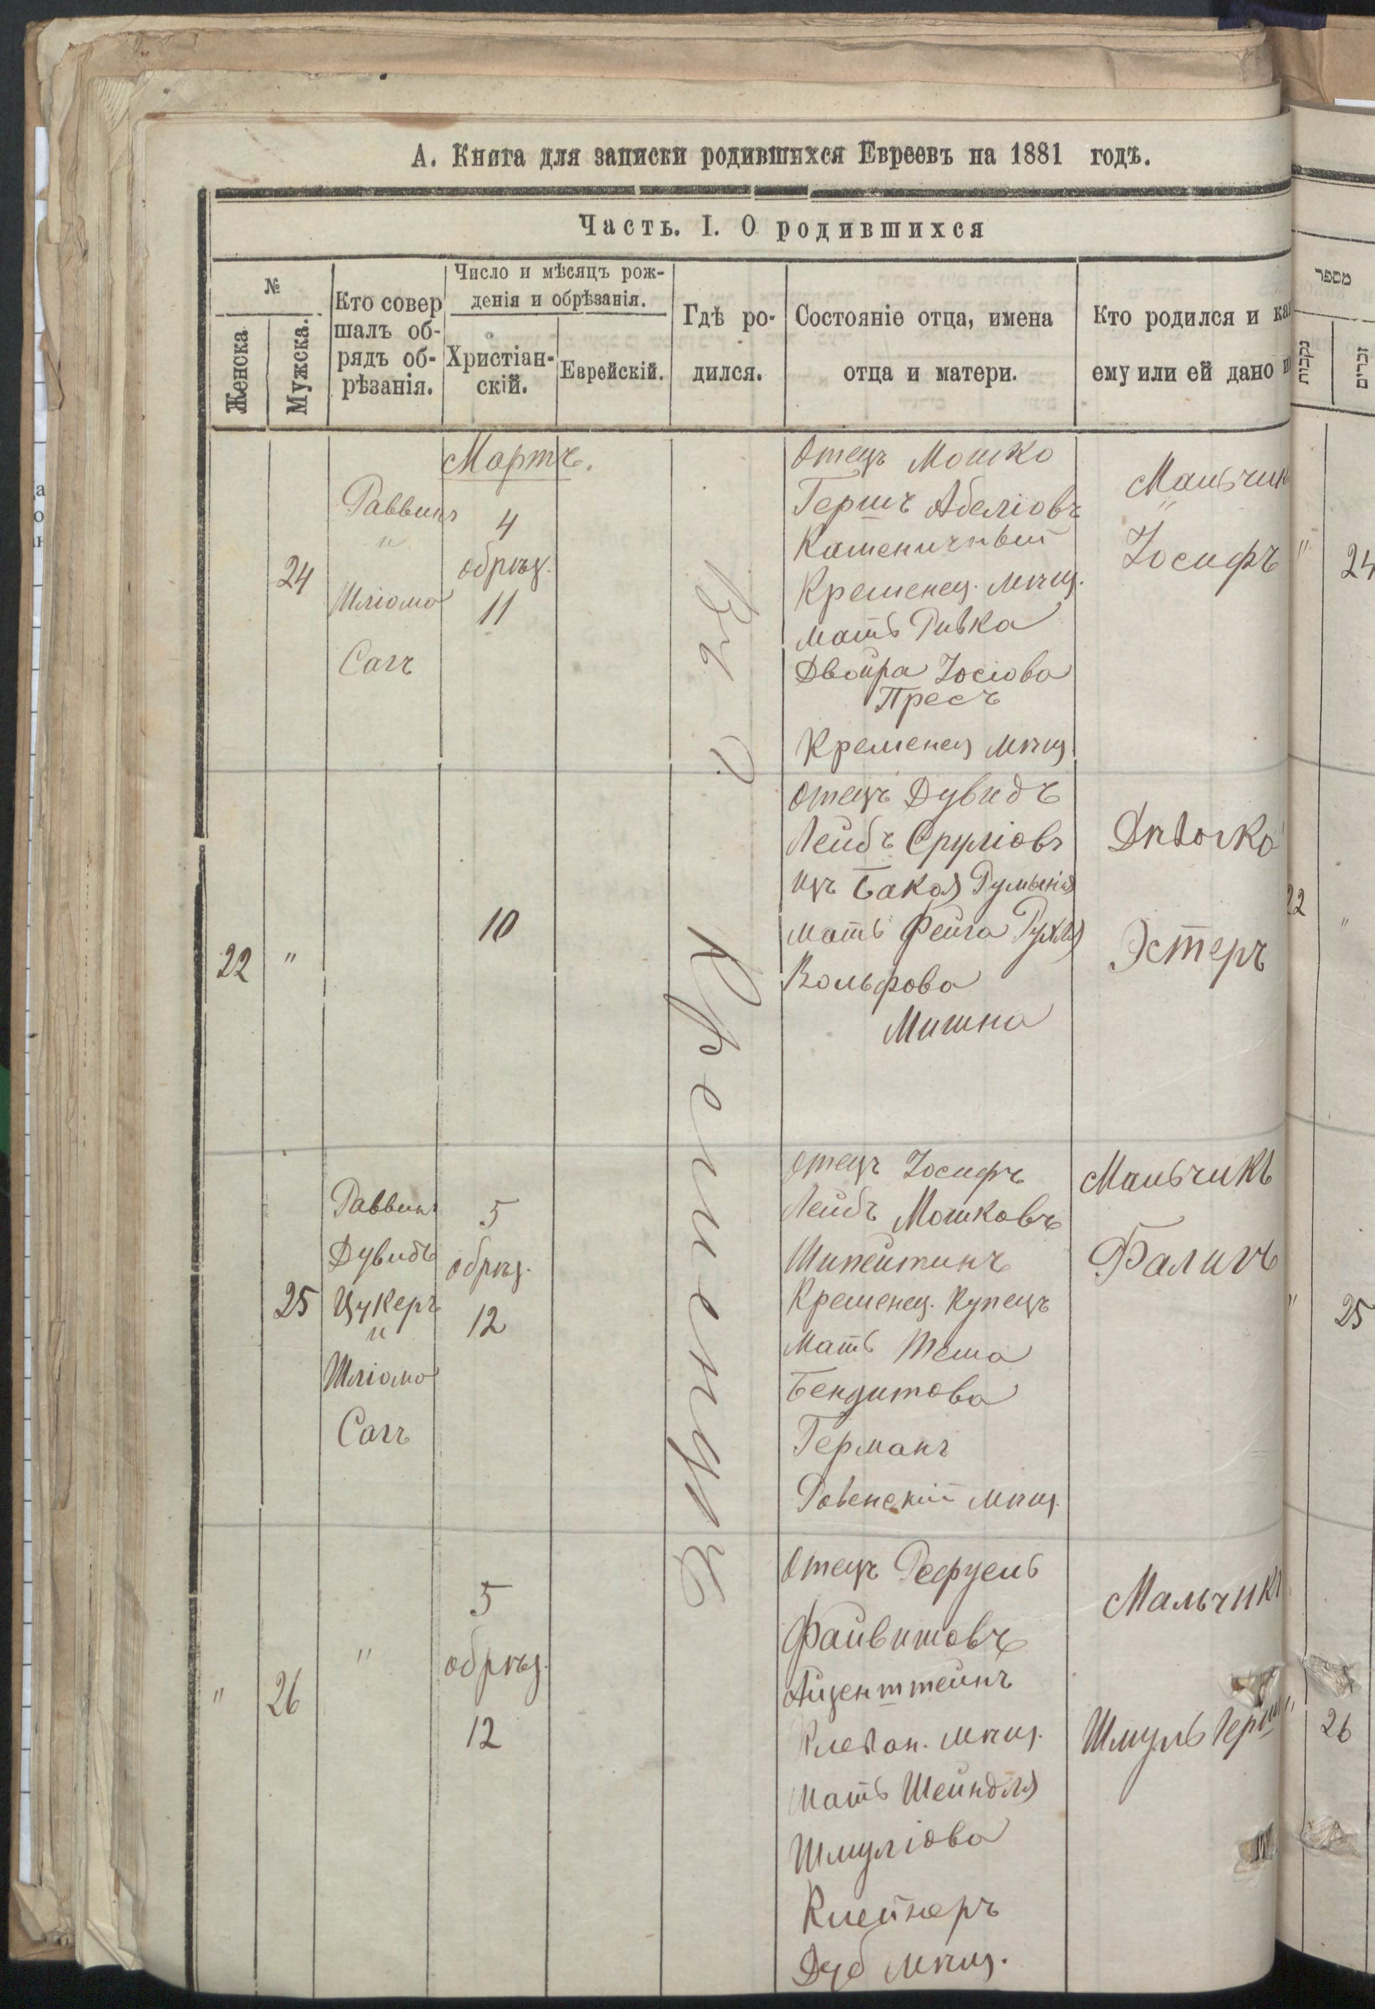 А. Книга для записки родившихся Евреевъ на 1881 годъ.
Часть. I. О родившихся
№
Женска
Мужска.
Кто совер
шалъ об-
рядъ об-
рѣзанія.
Число и мѣсяцъ рож-
денія и обрѣзанія.
Христіан-
скій.
Еврейскій.
Гдѣ ро-
дился.
Состояніе отца, имена
отца и матери.
Кто родился и
ему или ей дано
Въ г.
Кременцѣ
Мартъ.
24
Раввинъ
и
Шліома
Сагъ
4
обрѣз.
11
Отецъ Мошко
Гершъ Абеліовъ
Кременец. мѣщ.
мать Ривка
Двойра Іосіова
Пресъ
Кременец мѣщ.
Мальчик
Іосифъ
22
"
10
Отецъ Дувидъ
Лейбъ Сруліовъ
изъ Бакоя Румынія
мать Фейга Рухля
Вольфова
Мишна
Дѣвочка
Эстеръ
25
Раввинъ
Дувидъ
Цукеръ
и
Шліома
Сагъ
5
обрѣз.
12
отецъ Іосифъ
Лейбъ Мошковъ
Кременец. Купецъ
мать Теша
Бендитова
Германъ
Ровенскій мѣщ.
Мальчикъ
Фаликъ
"
26
"
5
обрѣз.
12
Отецъ Рефуель
Файвишовъ
Айзенштейнъ
Клеван. мѣщ.
мать Шейндля
Шмуліова
Клейнеръ
Дуб мѣщ.
Мальчикъ
Шмуль Герш
מספר
נקבות
זכרים
"
24
22
"
"
25
"
26